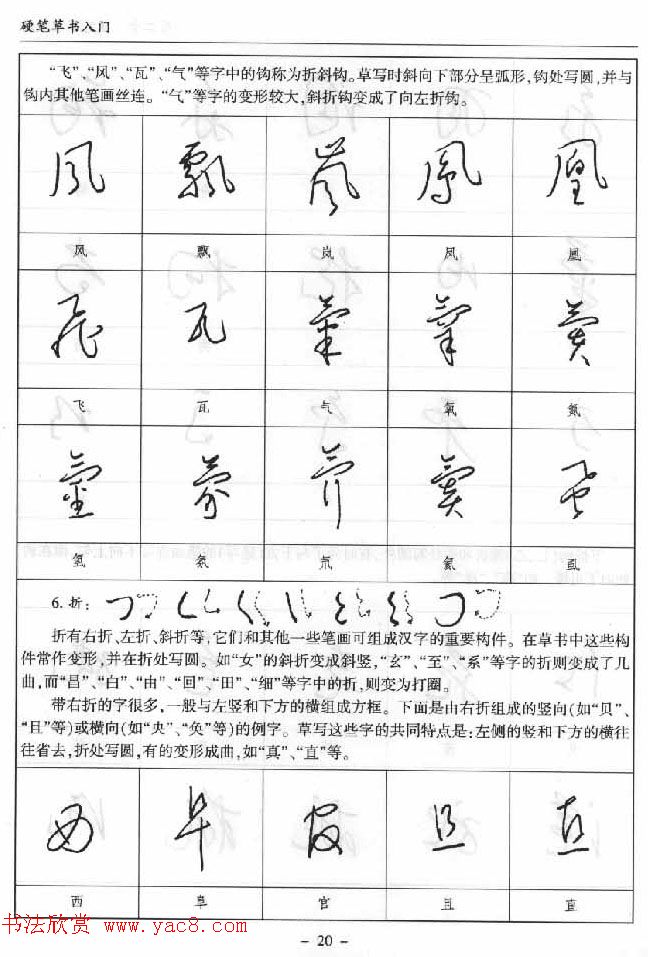 硬笔草书入门
“飞”、“风”、“瓦”、“气”等字中的钩称为折斜钩。草写时斜向下部分呈弧形,钩处写圆,并与
钩内其他笔画丝连。“气”等字的变形较大,斜折钩变成了向左折钩。
风 飘 岚 凤 凰
飞 瓦 气 氧 氮
氢 氛 虱
6. 折:
折有右折、左折、斜折等,它们和其他一些笔画可组成汉字的重要构件。在草书中这些构
件常作变形,并在折处写圆。如“女”的斜折变成斜竖,“玄”、“至”、“系”等字的折则变成了几
曲,而“昌”、“白”、“由”、“回”、“田”、“细”等字中的折,则变为打圈。
带右折的字很多,一般与左竖和下方的横组成方框。下面是由右折组成的竖向(如“贝”、
“且”等)或横向(如“央”、“奂”等)的例字。草写这些字的共同特点是:左侧的竖和下方的横往
往省去,折处写圆,有的变形成曲,如“真”、“直”等。
西 阜 官 且 直
书法欣赏 www.yac8.com
- 20 -